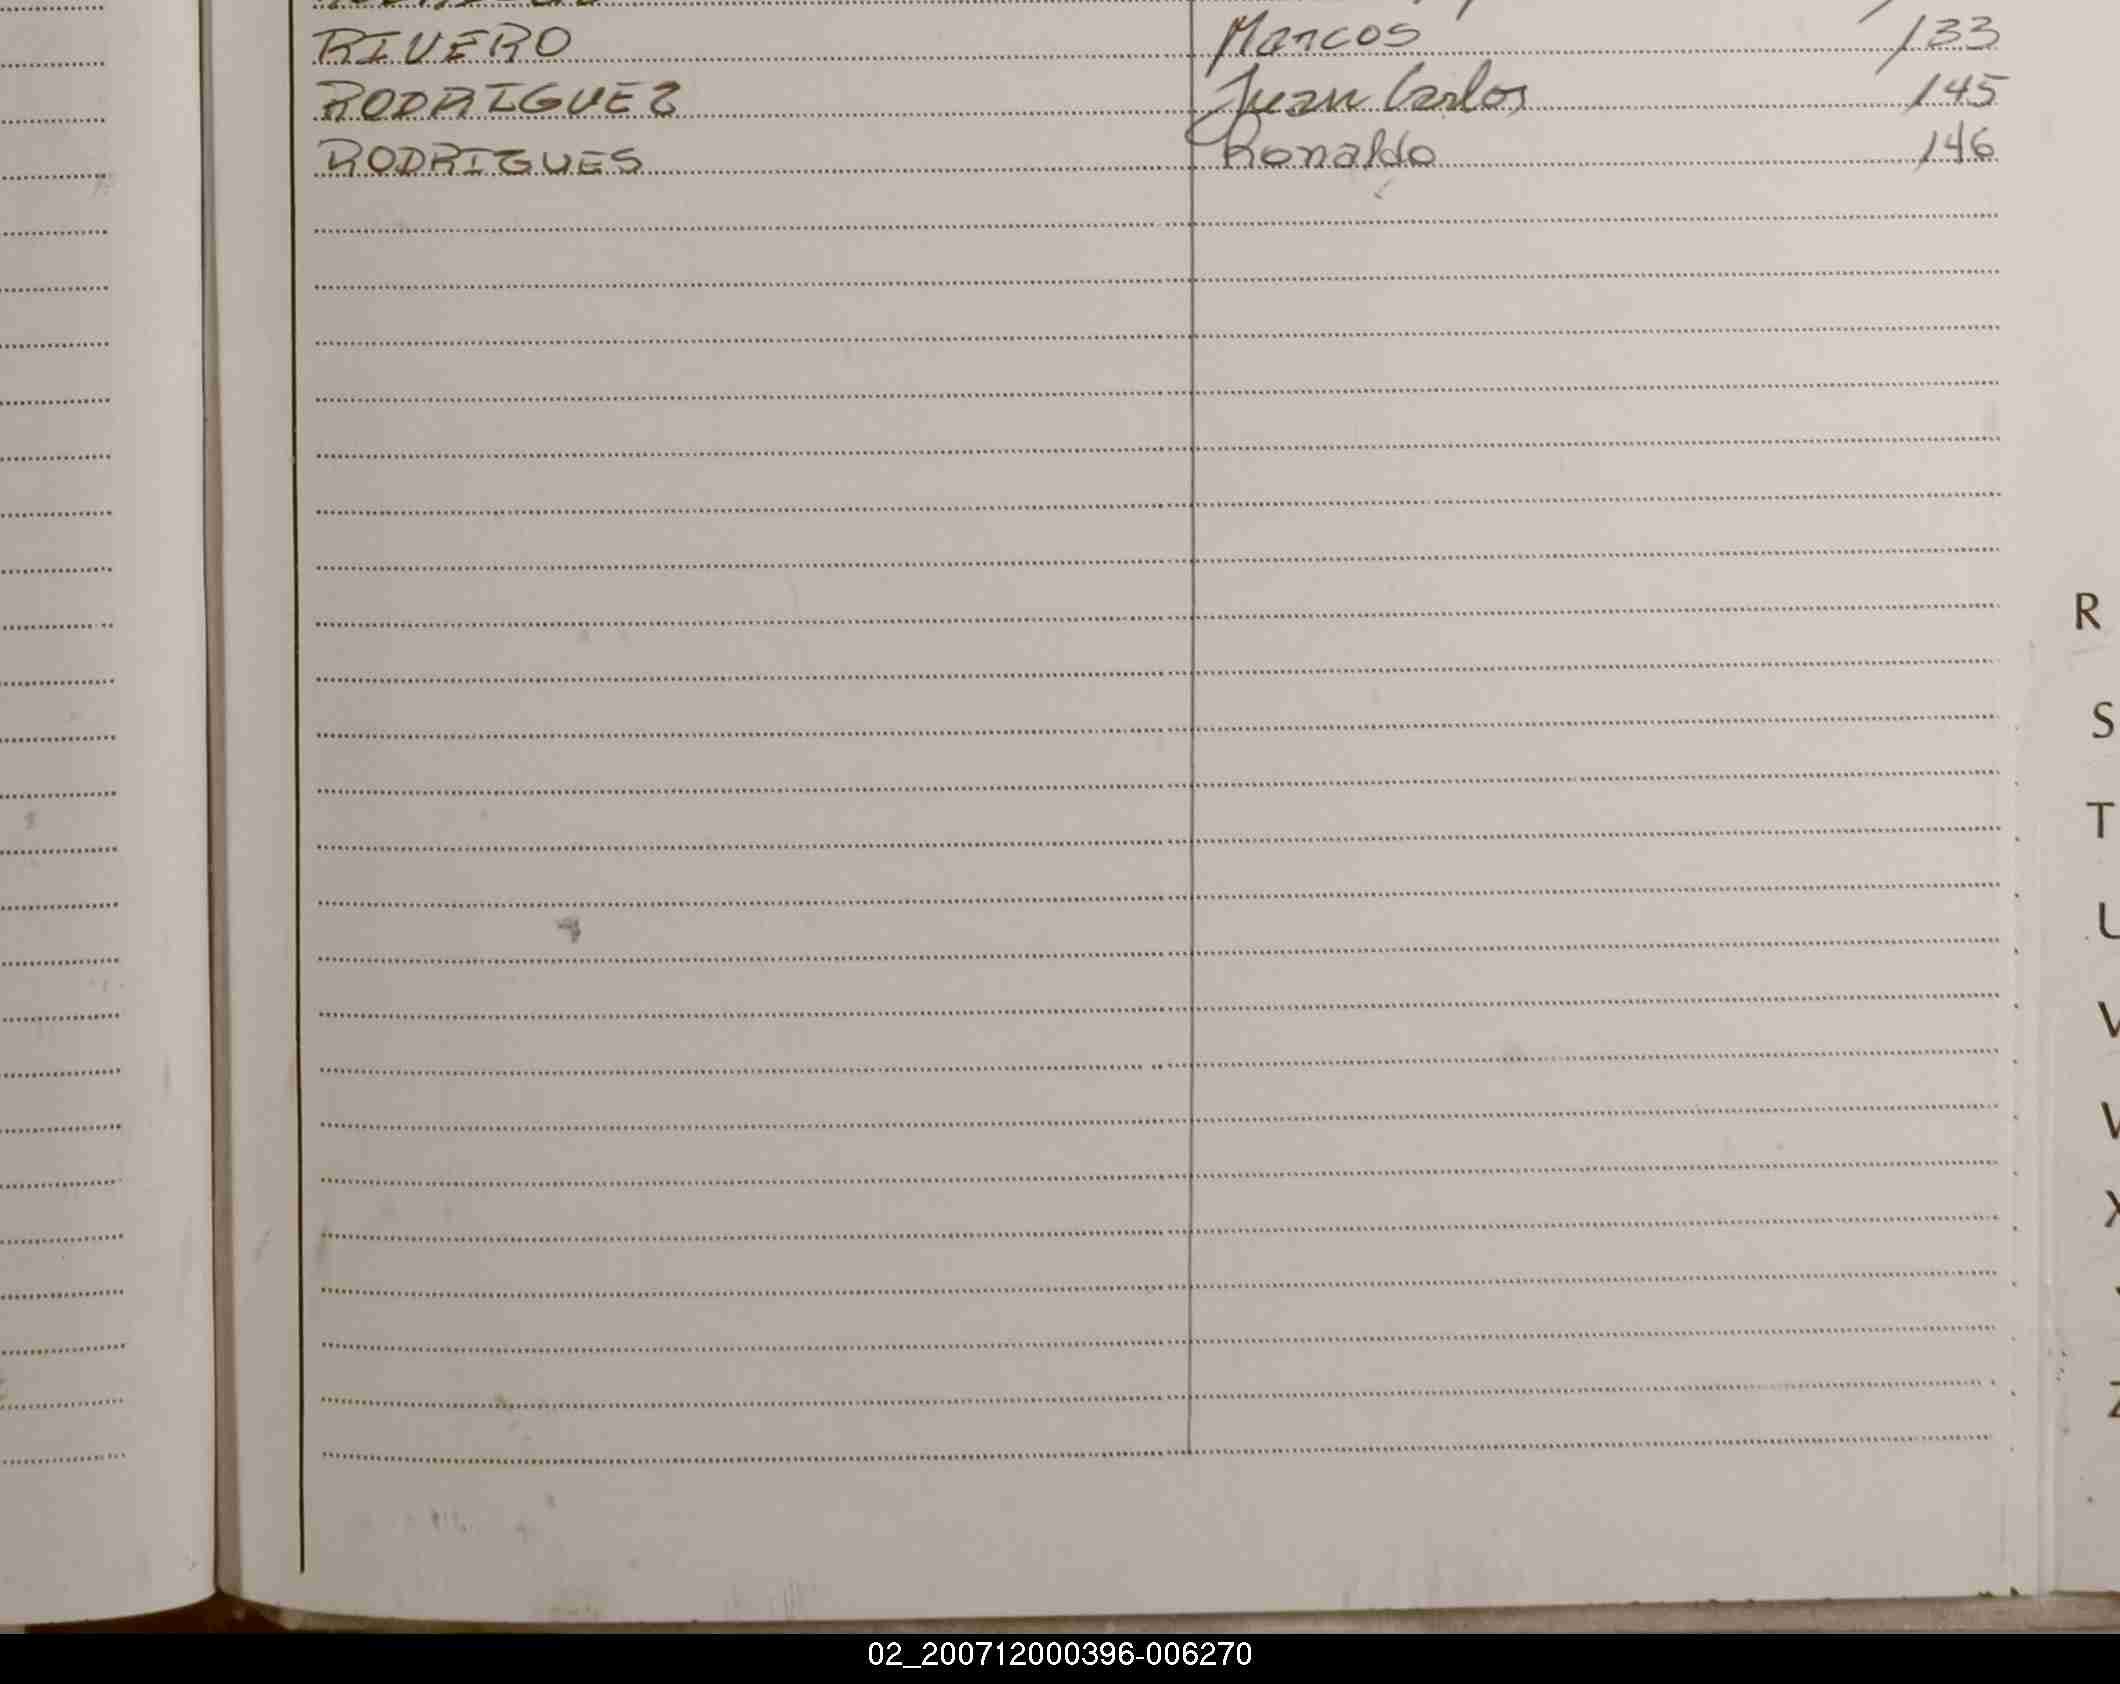 RIVERO Marcos 133
RODRIGUEZ Juan Carlos 145
RODRIGUES Ronaldo 146
R
S
T
U
V
W
X
Z
02_200712000396-006270